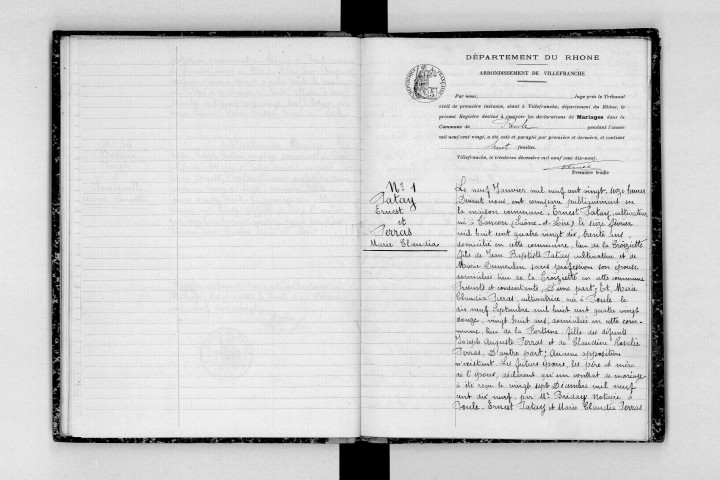 DÉPARTEMENT DU RHONE
ARRONDISSEMENT DE VILLEFRANCHE
Par nous, Juge près le Tribunal
civil de première instance, séant à Villefranche, département du Rhône, le
présent Registre destiné à recevoir les déclarations de Mariages dans la
Commune de Poule pendant l'année
mil neuf cent vingt, a été coté et paraphé par première et dernière, et contient
huit feuilles.
Villefranche, le trente-un décembre mil neuf cent dix-neuf.
Première feuille
N° 1
Patay
Ernest
et
Perras
Marie Claudia
Le neuf Janvier mil neuf cent vingt, heures
Devant nous, ont comparu publiquement en
la maison commune, Ernest Patay, cultivateur
né à (Saône-et-Loire) le seize février
mil huit cent quatre vingt dix, trente ans
domicilié en cette commune, lieu de la Croizette
fils de Jean Baptiste Patay cultivateur et de
Marie Dumoulin sans profession son épouse
domiciliés lieu de la Croizette en cette commune
présents et consentants, D'une part; Et, Marie
Claudia Perras, cultivatrice, née à Poule le
dix neuf Septembre mil huit cent quatre vingt
douze, vingt huit ans, domiciliée en cette com-
mune, lieu de la fille des défunts
Joseph Auguste Perras et de Claudine Rosalie
Perras, D'autre part; Aucune opposition
n'existant. Les futurs époux, les père et mère
de l'époux, déclarent qu'un contrat de mariage
a été reçu le vingt sept Décembre mil neuf
cent dix neuf, par Me Briday Notaire à
Poule. Ernest Patay et Marie Claudia Perras